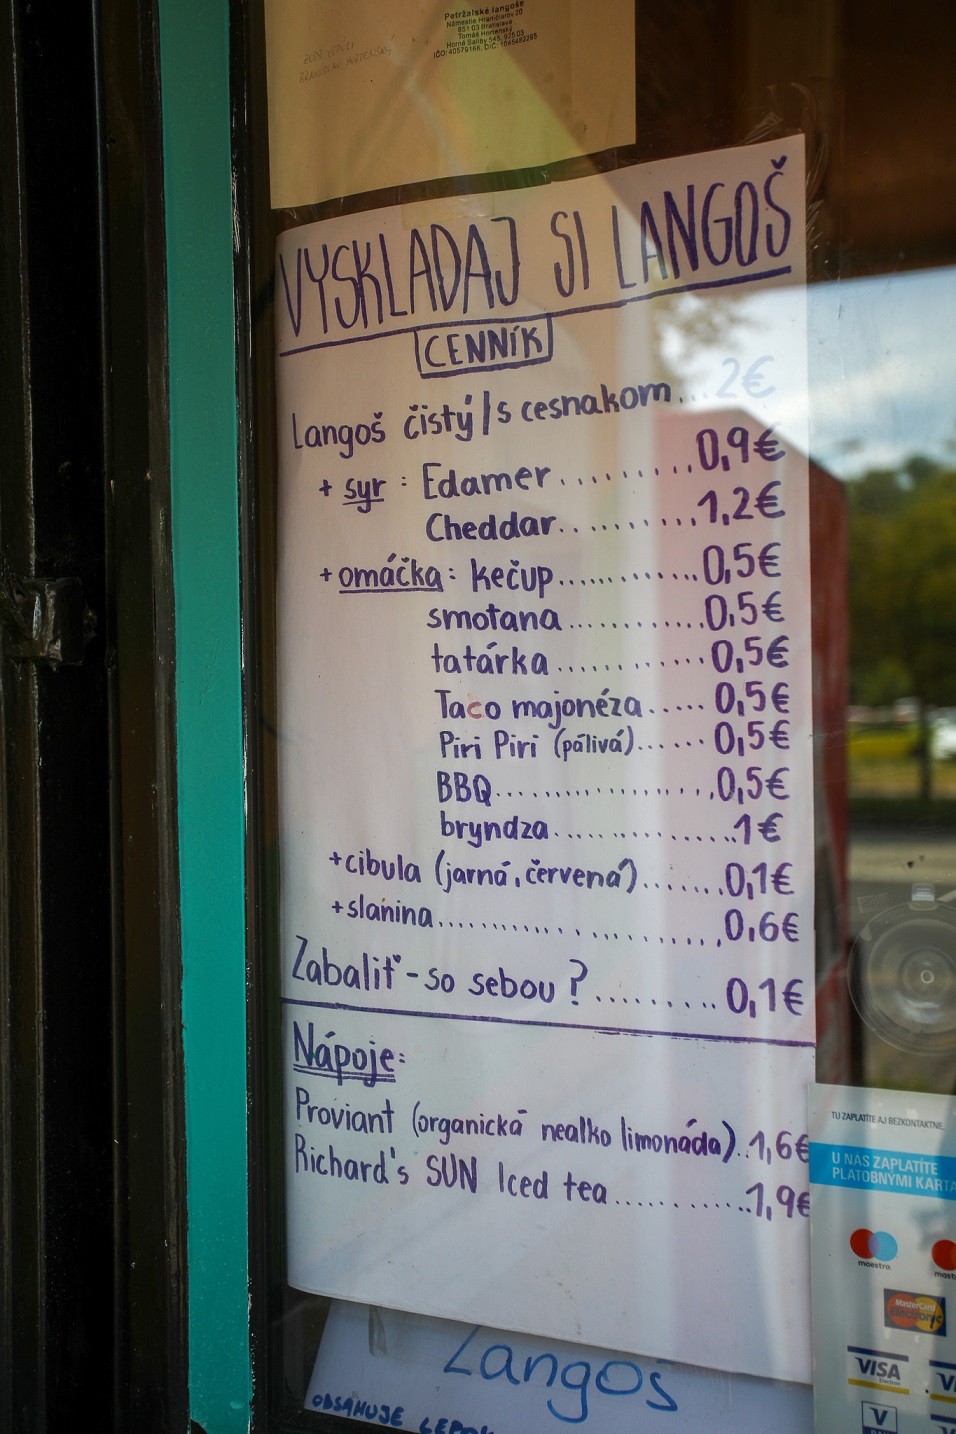 Petržalské langoše
Námestie Hraničiarov 20
851 03 Bratislava
Tomáš Hortenský
Horné Saliby 545, 925 03
VYSKLADAJ SI LANGOŠ
CENNÍK
Langoš čistý/s cesnakom... 2€
+ syr: Edamer......... 0,9€
Cheddar.......... 1,2€
+ omáčka: kečup............. 0,5€
smotana............ 0,5€
tatárka............ 0,5€
Taco majonéza..... 0,5€
Piri Piri (pálivá)...... 0,5€
BBQ.................. 0,5€
bryndza................ 1€
+cibula (jarná, červená)....... 0,1€
+slanina....................... 0,6€
Zabaliť - so sebou?......... 0,1€
Nápoje:
Proviant (organická nealko limonáda).. 1,6€
Richard's SUN Iced tea............ 1,9€
TU ZAPLATÍTE AJ BEZKONTAKTNE.
U NÁS ZAPLATÍTE
PLATOBNÝMI KARTA
maestro.
MasterCard
electronic
VISA
Electron
V
Langoš
OBSAHUJE LEPOK